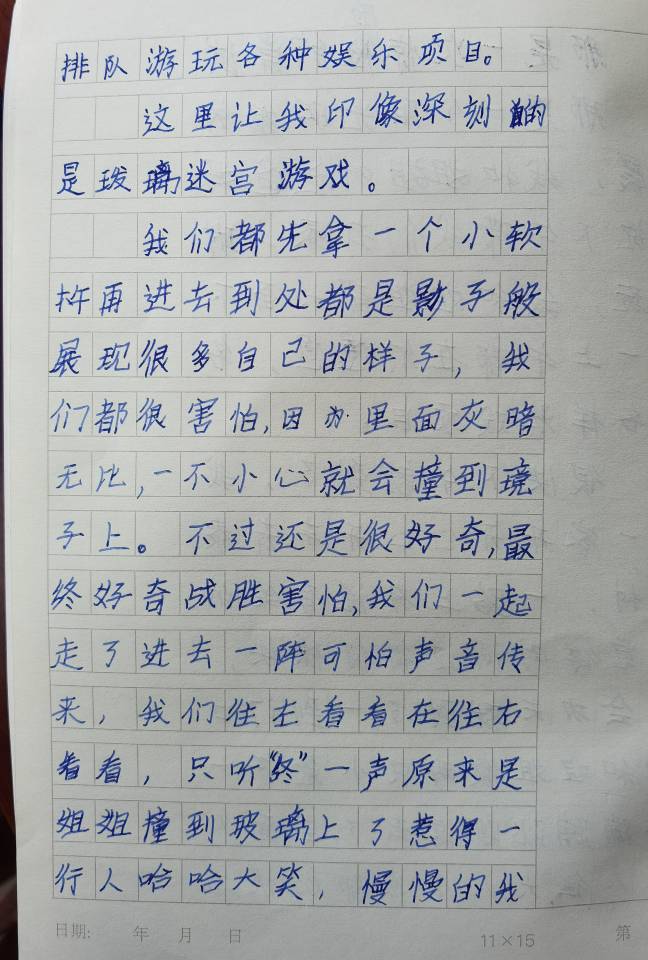 排队游玩各种娱乐项目。
这里让我印像深刻的
是玻璃迷宫游戏。
我们都先拿一个小软
杵再进去到处都是影子般
展现很多自己的样子，我
们都很害怕，因为里面灰暗
无比，一不小心就会撞到境
子上。不过还是很好奇，最
终好奇战胜害怕，我们一起
走了进去一阵可怕声音传
来，我们往左看看在往右
看看，只听“咚”一声原来是
姐姐撞到玻璃上了惹得一
行人哈哈大笑，慢慢的我
日期： 年 月 日
11×15
第